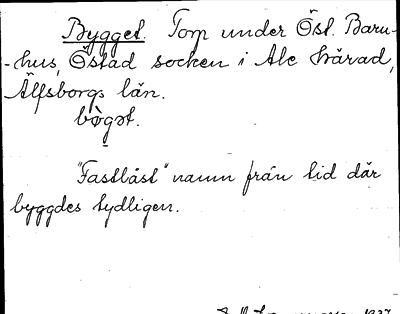 Bygget. Torp under Öst. Baru-
-hus, Östad socken i Ale härad,
Älfsborgs län.
bỳgət.
"Fastläst" namn från tid där
byggdes tydligen.
1937